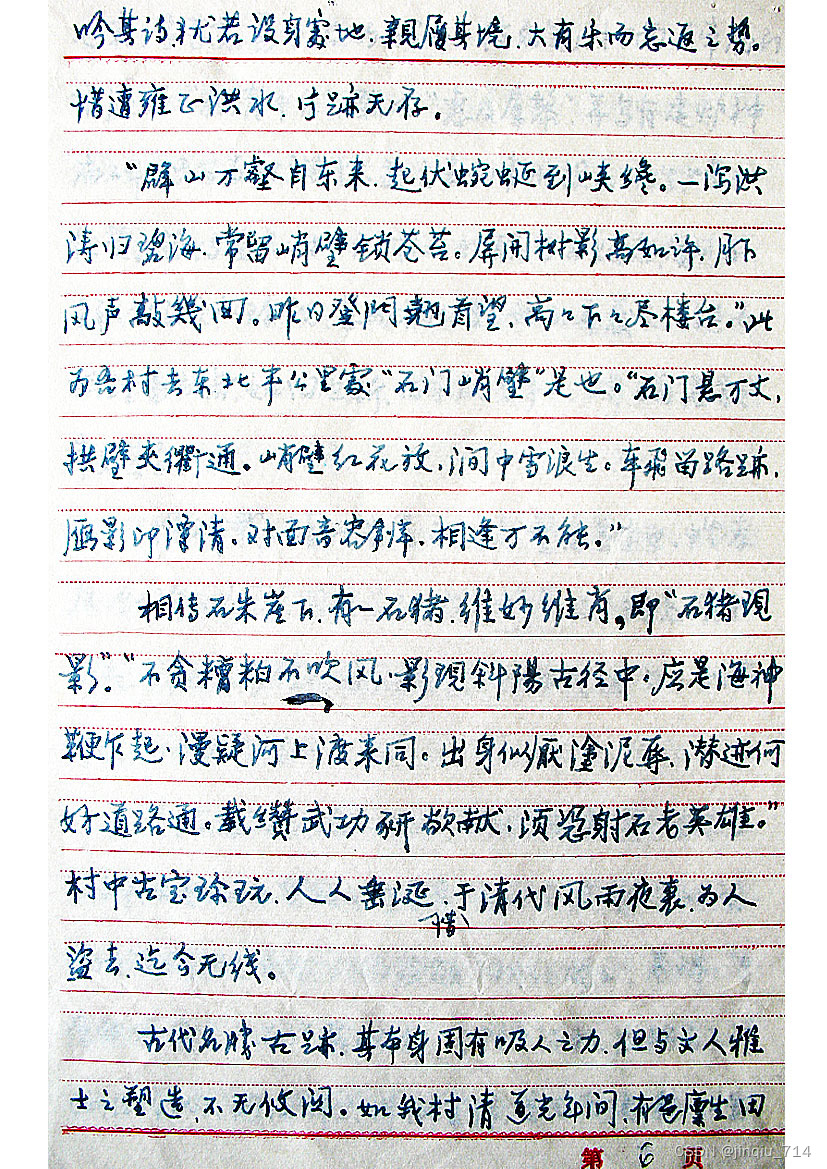 吟其诗,犹若设身处地,親履其境,大有乐而忘返之势。
惜遭雍正洪水,片跡无存。
“群山万壑自东来,起伏蜿蜒到峡 。一泻洪
涛归碧海,常留峭壁锁苍苔。屏開树影高如许,月下
风声敲幾回。昨日登門翹首望,高々下々尽楼台。”此
为吾村去东北半公里處“石门峭壁”是也。“石门悬万丈,
拱壁夾衢通。峭壁红花放,涧中雪浪生。车 留路跡,
雁影印潭清。对面音容 ,相逢了不能。”
相传石朱崖下,有一石猪,维妙维肖,即“石猪現
影”。“不贪糟粕不吹风,影現斜陽古径中,应是海神
鞭乍起,漫疑河上渡来同。出身似厭塗泥辱,潜迹何
好道路通。載纘武功豜欲献,须 射石者英雄。”
村中古宝珍玩,人人垂涎,于清代风雨夜裏,为人
惜
盗去,迄今无线。
古代名勝古跡,其本身固有吸人之力,但与文人雅
士之塑造,不无攸関。如我村清道光年间,有邑廩生田
第 6 页
CSDN @jinqiu_714